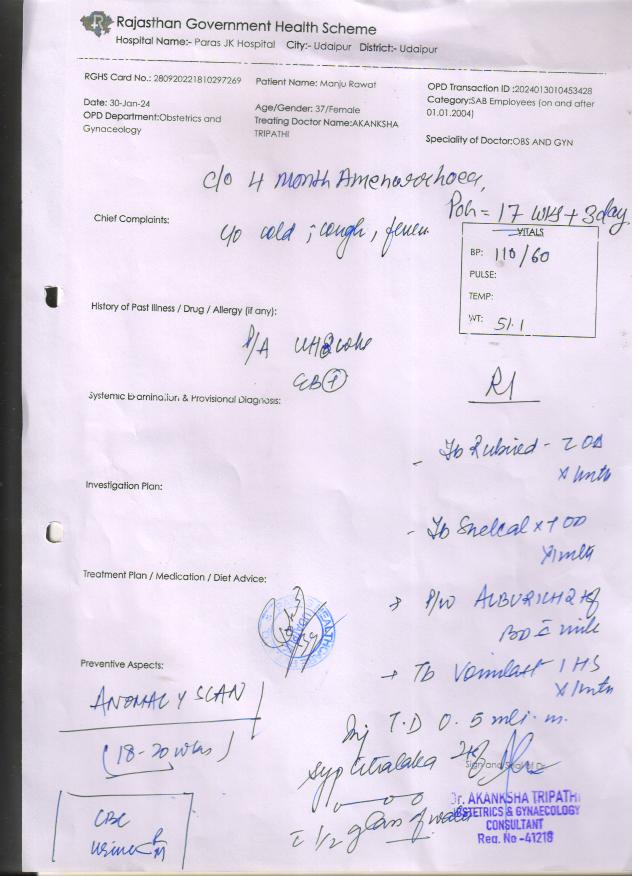 Rajasthan Government Health Scheme
Hospital Name:- Paras JK Hospital City:- Udaipur District:- Udaipur
RGHS Card No.: 280920221810297269
Patient Name: Manju Rawat
OPD Transaction ID :2024013010453428
Date: 30-Jan-24
Age/Gender: 37/Female
Category:SAB Employees (on and after 01.01.2004)
OPD Department:Obstetrics and Gynaceology
Treating Doctor Name:AKANKSHA TRIPATHI
Speciality of Doctor:OBS AND GYN
c/o 4 month Amenorrhoea,
POG = 17 wks + 3 day.
Chief Complaints:
c/o cold ; cough, fever
VITALS
BP: 110/60
PULSE:
TEMP:
WT: 51.1
History of Past Illness / Drug / Allergy (if any):
P/A
Systemic Examination & Provisional Diagnosis:
Investigation Plan:
- Tb Shelcal x 1 OD
x 1 mth
Treatment Plan / Medication / Diet Advice:
BD c milk
Preventive Aspects:
→ Tb 1 HS
x 1 mth
ANOMALY SCAN
(18-20 wks)
Inj T.D 0.5 ml i.m.
Syp
c 1/2 glass of water
CBC
urine R
M
Sign and Seal of Dr.
Dr. AKANKSHA TRIPATHI
OBSTETRICS & GYNAECOLOGY
CONSULTANT
Reg. No -41218